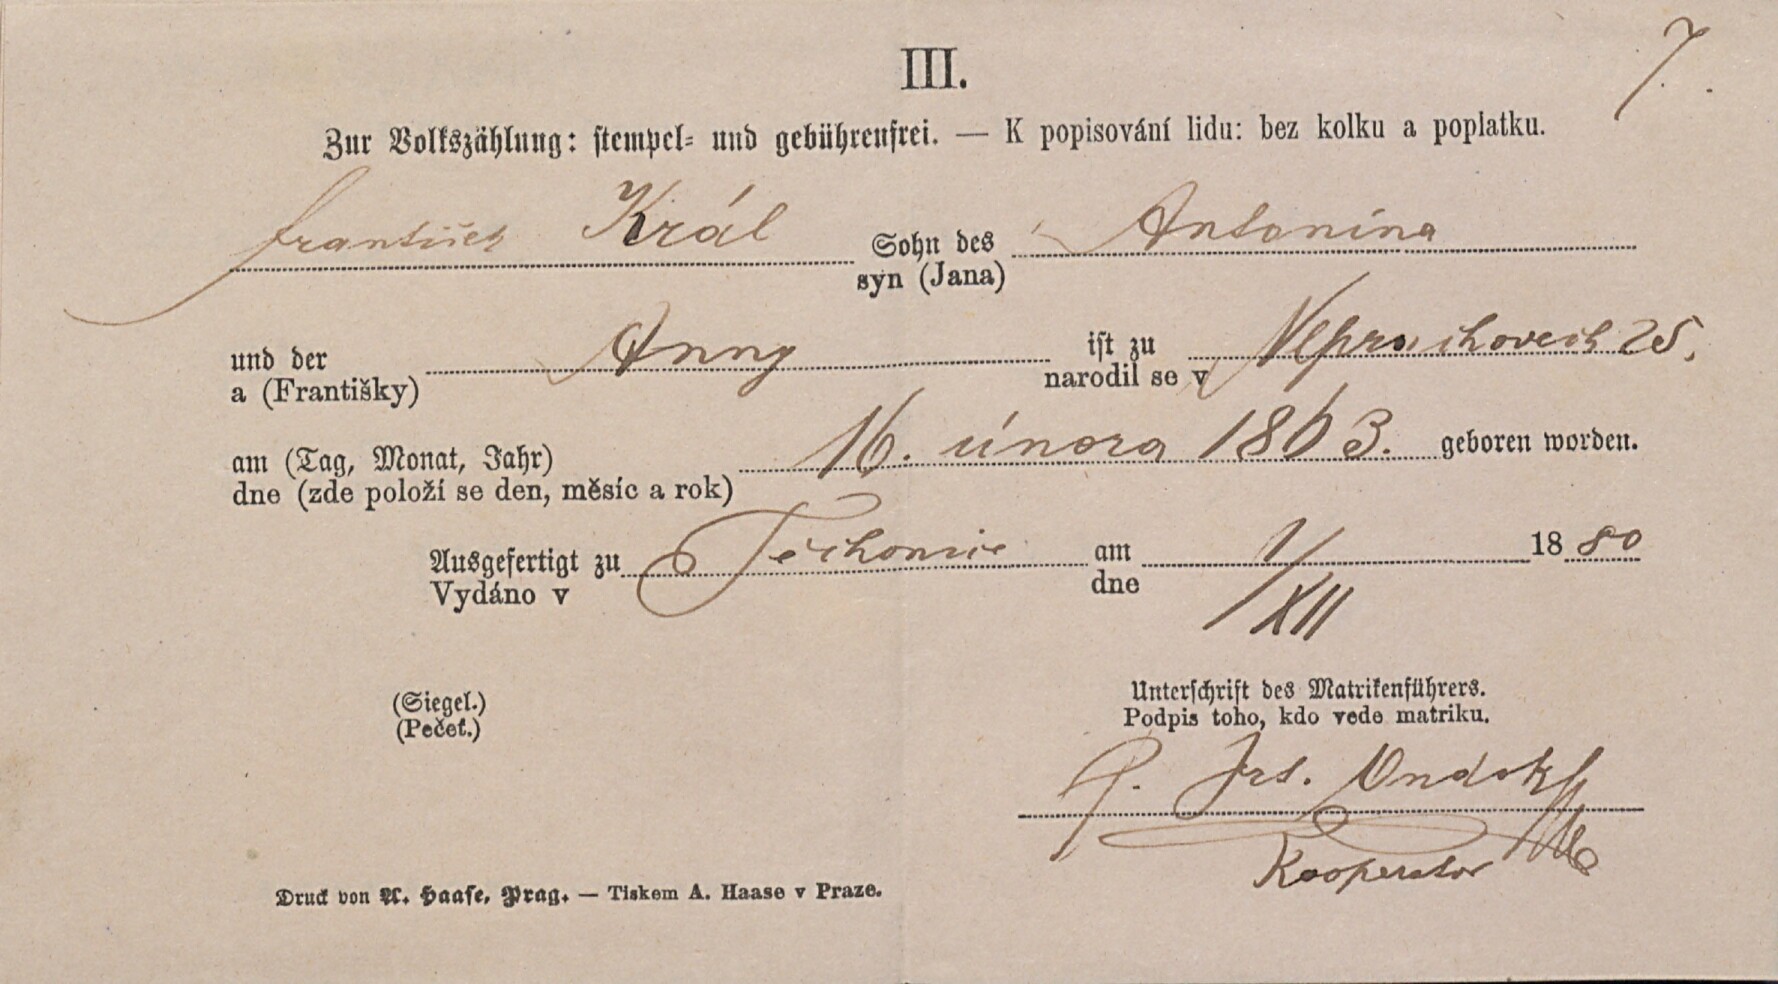 7.
III.
Zur Volkszählung: stempel- und gebührenfrei. — K popisování lidu: bez kolku a poplatku.
František Král Sohn des Antonína
syn (Jana)
und der Anny ist zu Neprochovech 25.
a (Františky) narodil se v
am (Tag, Monat, Jahr) 16. února 1863. geboren worden.
dne (zde položí se den, měsíc a rok)
Ausgefertigt zu Těchonic am 1/XII 1880
Vydáno v dne
(Siegel.) Unterschrift des Matrikenführers.
(Pečeť.) Podpis toho, kdo vede matriku.
P. Frt.
Kooperator
Druck von A. Haase, Prag. — Tiskem A. Haase v Praze.